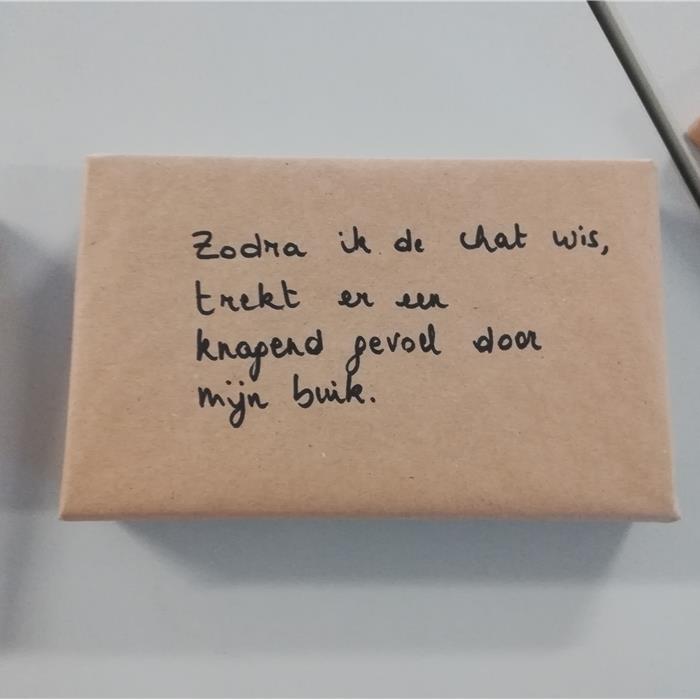 Zodra ik de chat wis,
trekt er een
knagend gevoel door
mijn buik.